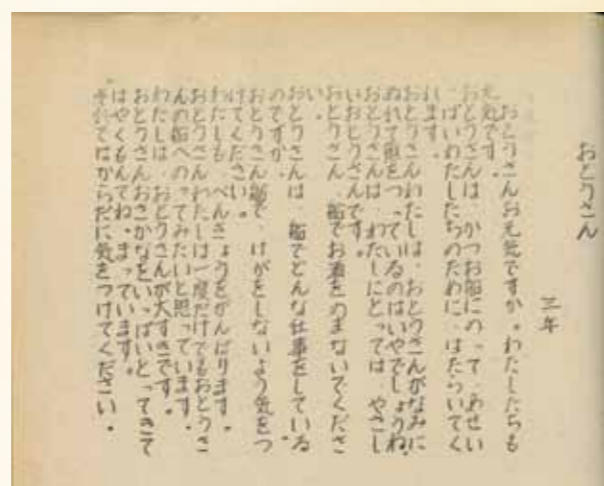 おとうさん
三年
おとうさんお元気ですか。わたしたちも
元気です。
おとうさんは かつお船にのって、あせい
っぱいわたしたちのために、はたらいてく
れます。
おとうさんわたしは、おとうさんがなみに
ぬれて魚をつっているのはいやでしょうね
おとうさんは、わたしにとっては、やさし
いおとうさんです。
おとうさん、船でお酒をのまないでくださ
い。
おとうさんは 船でどんな仕事をしている
のですか。
おとうさん船で、けがをしないよう気をつ
けてください。
わたしも、べんきょうをがんばります。
おとうさんわたしは一度だけでもおとうさ
んの船へのってみたいと思っています。
わたしは、おとうさんが大すきです。
おとうさんおさかなをいっぱいとってきて
はやくもんてね。まっています。
それではからだに気をつけてください。